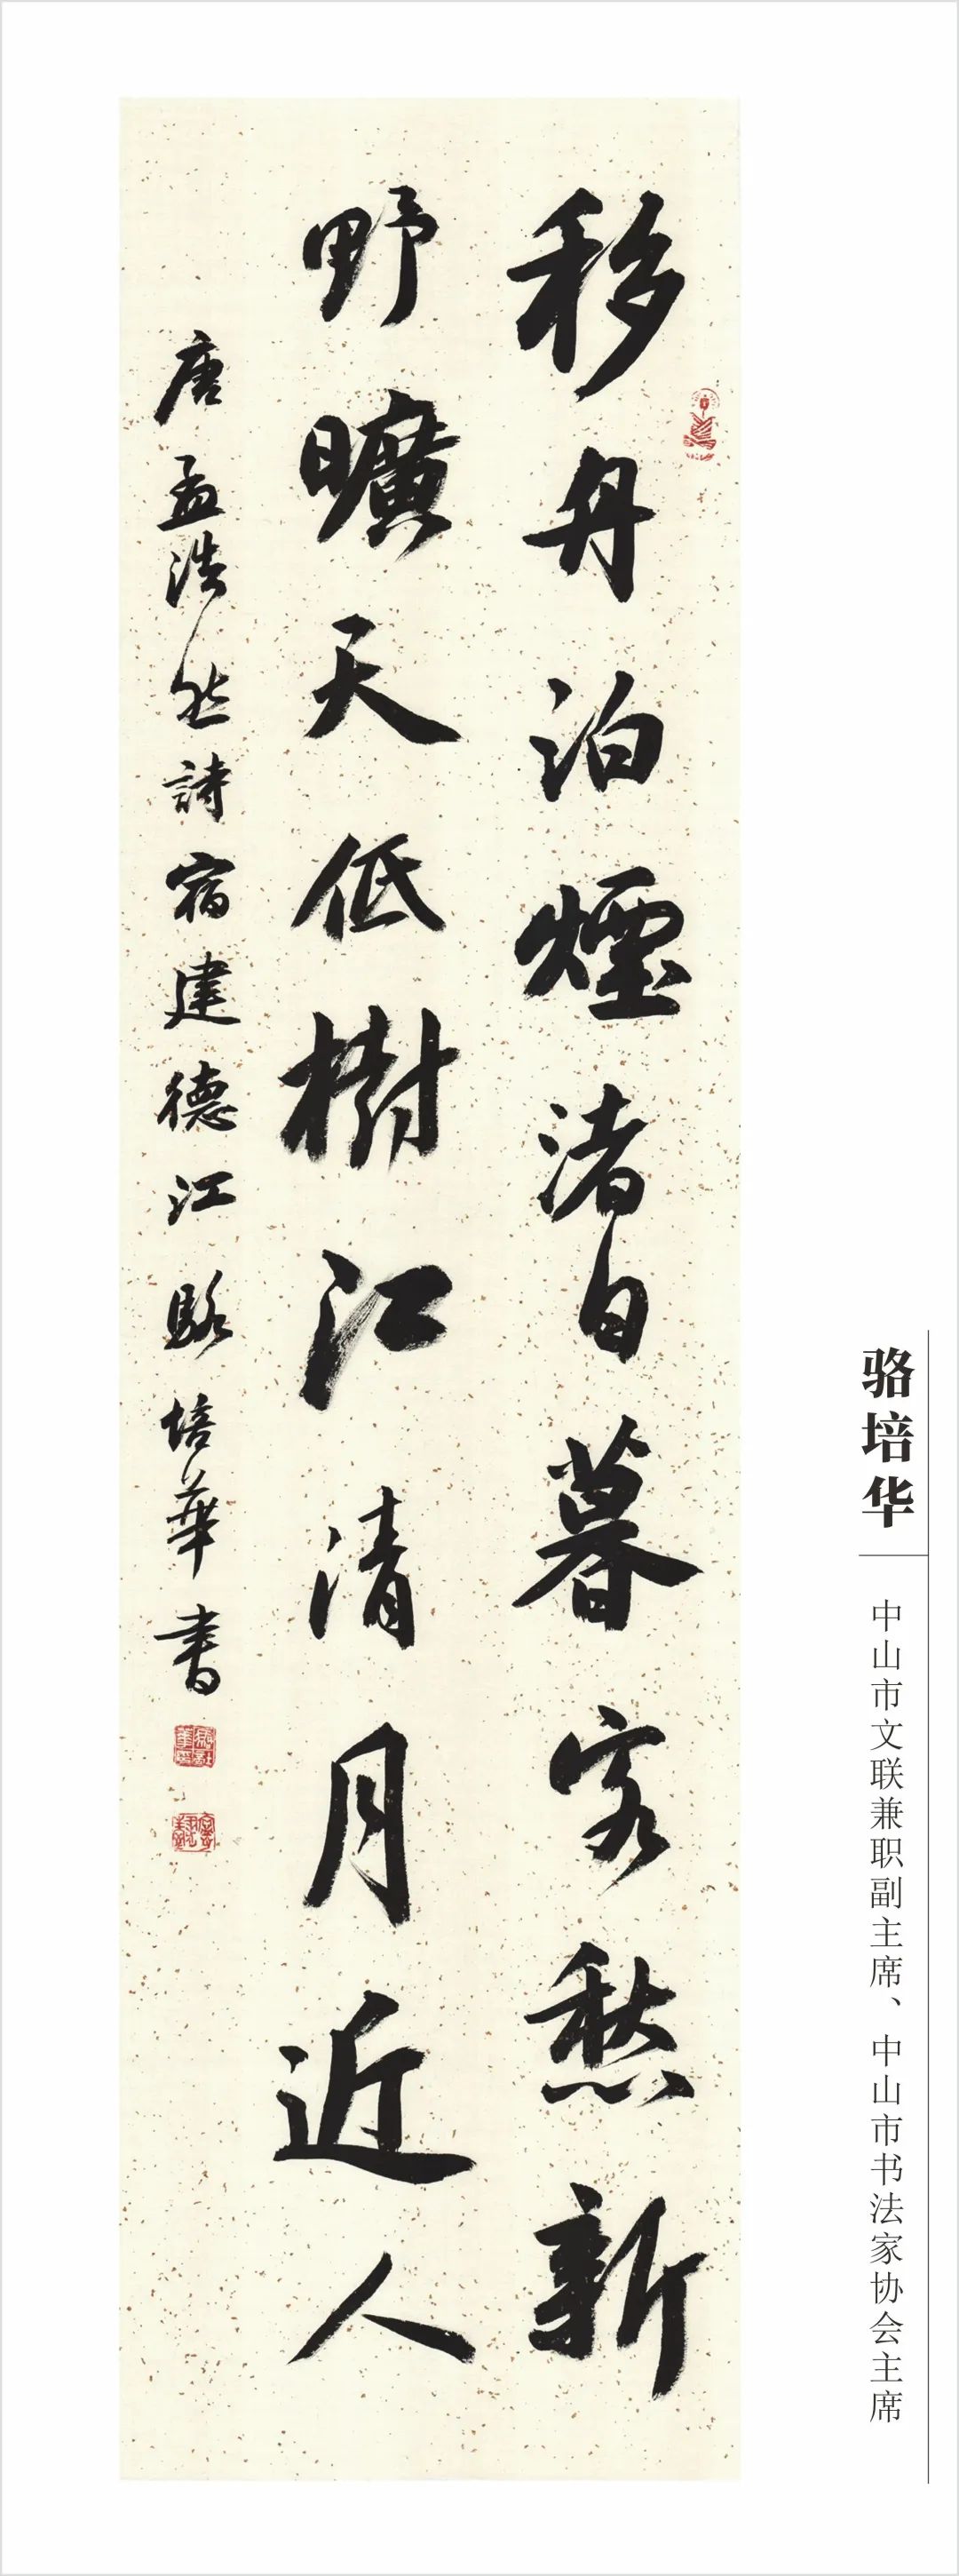 移舟泊煙渚日暮客愁新
野曠天低樹江清月近人
唐孟浩然詩宿建德江駱培華書
骆培华
中山市文联兼职副主席、中山市书法家协会主席